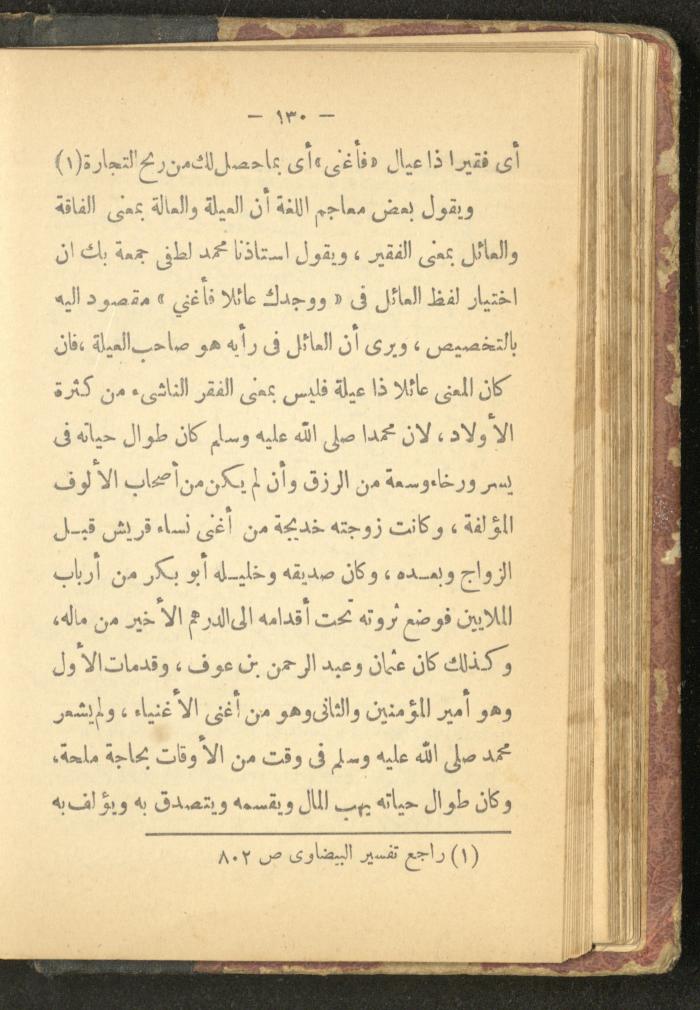 — ١٣٠ —
أى فقيرا ذا عيال «فأغنى» أى بما حصل لك من ربح التجارة (١)
ويقول بعض معاجم اللغة أن العيلة والعالة بمعنى الفاقة
والعائل بمعنى الفقير ، ويقول استاذنا محمد لطفى جمعة بك ان
اختيار لفظ العائل فى « ووجدك عائلا فأغني » مقصود اليه
بالتخصيص ، ويرى أن العائل فى رأيه هو صاحب العيلة ، فان
كان المعنى عائلا ذا عيلة فليس بمعنى الفقر الناشىء من كثرة
الأولاد ، لان محمدا صلى الله عليه وسلم كان طوال حياته فى
يسر ورخاء وسعة من الرزق وأن لم يكن من أصحاب الألوف
المؤلفة ، وكانت زوجته خديجة من أغنى نساء قريش قبل
الزواج وبعده ، وكان صديقه وخليله أبو بكر من أرباب
الملايين فوضع ثروته تحت أقدامه الى الدرهم الأخير من ماله،
وكذلك كان عثمان وعبد الرحمن بن عوف ، وقد مات الأول
وهو أمير المؤمنين والثانى وهو من أغنى الأغنياء ، ولم يشعر
محمد صلى الله عليه وسلم فى وقت من الأوقات بحاجة ملحة،
وكان طوال حياته يهب المال ويقسمه ويتصدق به ويؤلف به
(١) راجع تفسير البيضاوى ص ٨٠٢